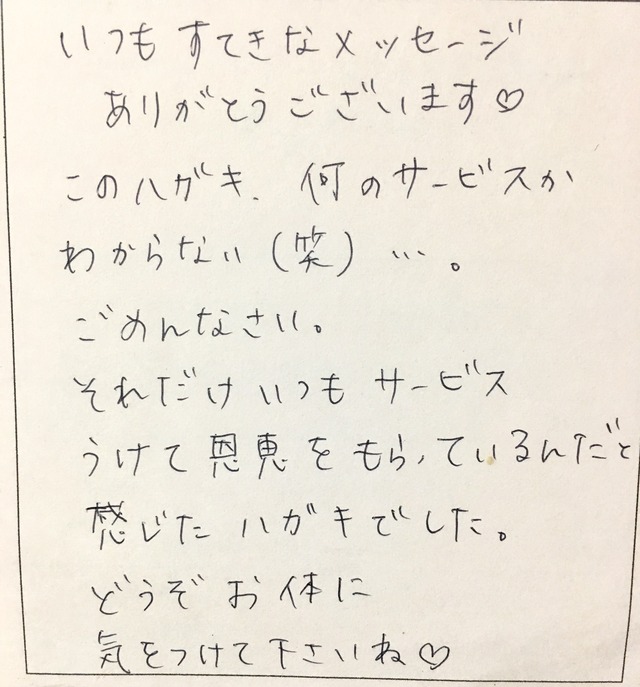 いつも すてきなメッセージ
ありがとうございます♡
このハガキ、何のサービスか
わからない(笑)…。
ごめんなさい。
それだけ いつも サービス
うけて恩恵をもらっているんだと
感じた ハガキでした。
どうぞ お体に
気をつけて下さいね♡